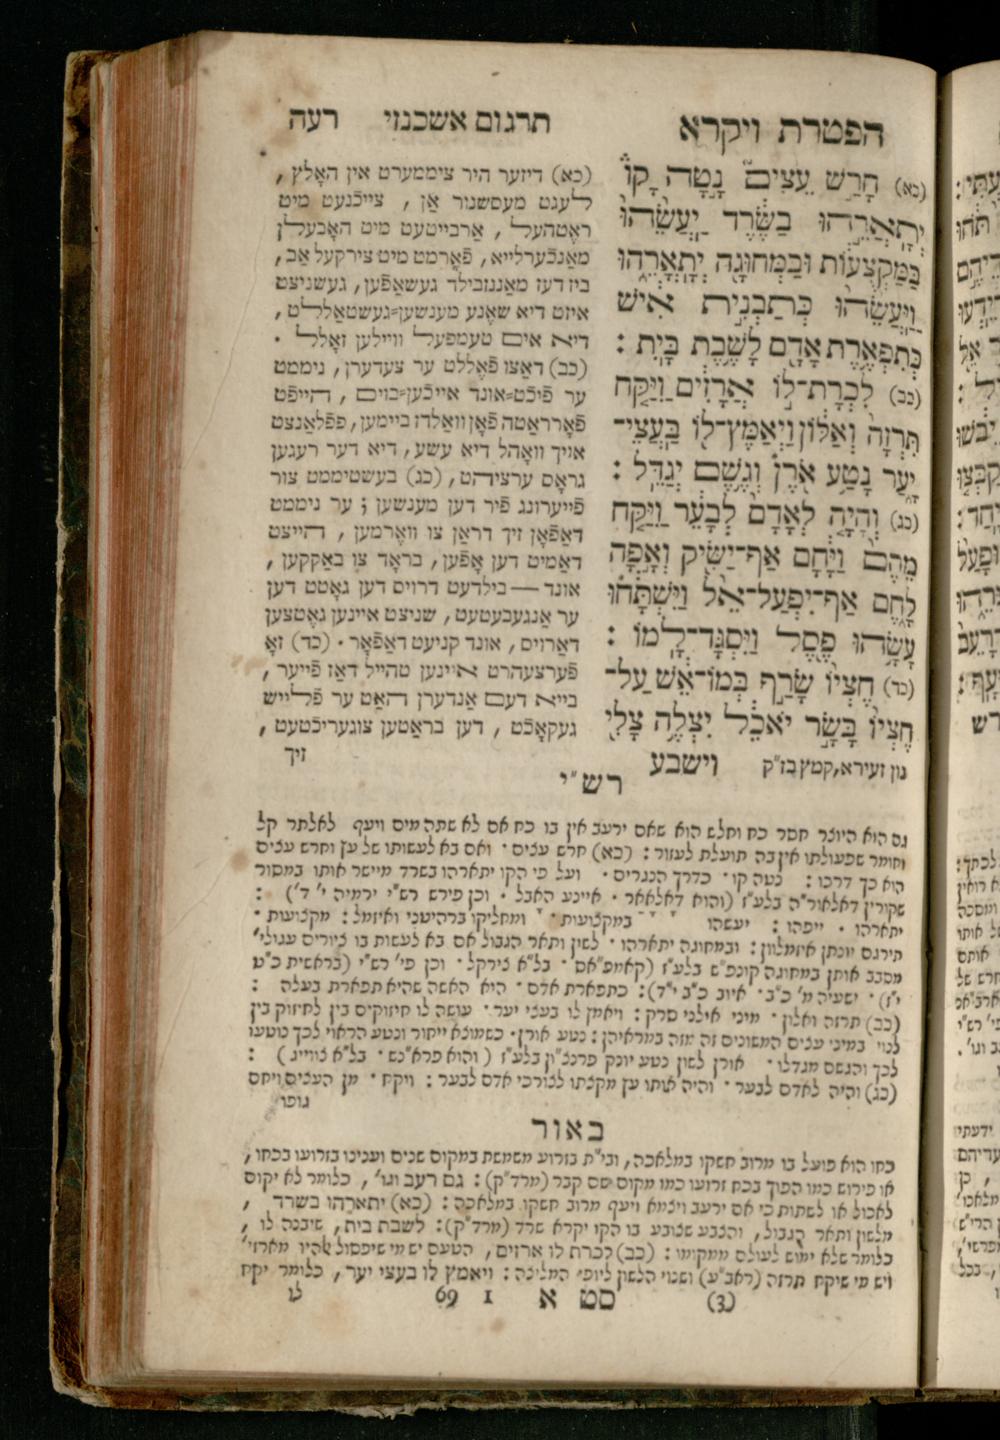 הפטרת ויקרא
תרגום אשכנזי רעה
(כא) חָרַשׁ עֵצִים נָטָה קָו
יְתָאֲרֵהוּ בַשֶּׂרֶד יַעֲשֵׂהוּ
בַּמַּקְצֻעוֹת וּבַמְּחוּגָה יְתָאֳרֵהוּ
וַיַּעֲשֵׂהוּ כְּתַבְנִית אִישׁ
כְּתִפְאֶרֶת אָדָם לָשֶׁבֶת בָּיִת :
(כב) לִכְרָת־לוֹ אֲרָזִים וַיִּקַּח
תִּרְזָה וְאַלּוֹן וַיְאַמֶּץ־לוֹ בַּעֲצֵי־
יָעַר נָטַע אֹרֶן וְגֶשֶׁם יְגַדֵּל :
(כג) וְהָיָה לְאָדָם לְבָעֵר וַיִּקַּח
מֵהֶם וַיָּחָם אַף־יַשִּׂיק וְאָפָה
לָחֶם אַף־יִפְעַל־אֵל וַיִּשְׁתָּחוּ
עָשָׂהוּ פֶסֶל וַיִּסְגָּד־לָמוֹ :
(כד) חֶצְיוֹ שָׂרַף בְּמוֹ־אֵשׁ עַל־
חֶצְיוֹ בָּשָׂר יֹאכֵל יִצְלֶה צָלִי
נון זעירא, קמץ בז״ק וישבע
(כא) דיזער היר ציממערט אין האָלץ ,
לעגט מעסשנור אַן , צייכֿנעט מיט
ראָטהעל , אַרבייטעט מיט האָבעלן
מאַנכֿערלייא, פֿאָרמט מיט צירקעל אַב,
ביז דעז מאַננזבילד געשאַפֿען, געשניצט
איזט דיא שאָנע מענשען=געשטאַללט,
דיא אים טעמפעל ווײלען זאָלל .
(כב) דאַצו פֿאָללט ער צעדערן, ניממט
ער פֿיכֿט=אונד אייכֿען=בוים , הײפֿט
פֿאָרראַטה פֿאָן וואַלדז ביימען, פֿפֿלאַנצט
אויך וואָהל דיא עשע, דיא דער רעגען
גראָס ערציהט, (כג) בעשטיממט צור
פֿייערונג פֿיר דען מענשען ; ער ניממט
דאַפֿאָן זיך דראַן צו וואַרמען , הייצט
דאַמיט דען אָפֿען, בראָד צו באַקקען ,
אונד — בילדעט דרויס דען גאָטט דען
ער אַנגעבעטעט, שניצט איינען גאָטצען
דאַרויס, אונד קניעט דאַפֿאָר . (כד) זאָ
פֿערצעהרט איינען טהייל דאַז פֿייער ,
בייא דעם אַנדערן האַט ער פֿלייש
געקאָכֿט , דען בראַטען צוגעריכֿטעט ,
זיך
רש״י
גם הוא היוצר חסר כח וחלש הוא שאם ירעב אין בו כח אם לא שתה מים ויעף לאלתר קל
וחומר שפעולתו אין בה תועלת לעזור : (כא) חרש עצים . ואם בא לעשותו של עץ וחרש עצים
הוא כך דרכו : נטה קו . כדרך הנגרים . ועל פי הקו יתארהו בשרד מיישר אותו במסור
שקורין דאלאור״ה בלע״ז (והוא דאָלאָאר . איינע האבל . וכן פירש רש״י ירמיה י׳ ד׳) :
יתארהו . ייפהו : יעשהו במקצעות . ומחליקו ברהיטני ואיזמל : מקצועות .
תירגם יונתן איזמלוון : ובמחוגה יתארהו . לשון ותאר הגבול אם בא לעשות בו ציורים עגולי׳
מסבב אותן במחוגה קונפ״ש בלע״ז (קאמפ״אס . בל״א צירקל . וכן פי׳ רש״י (בראשית כ״ט
י״ז) . ישעיה מ׳ כ״ב . איוב כ״ב י״ד): כתפארת אדם . היא האשה שהיא תפארת בעלה :
(כב) תרזה ואלון . מיני אילני סרק : ויאמץ לו בעצי יער . עושה לו חיזוקים בין לחיזוק בין
לנוי במיני עצים המשונים זה מזה במראיהן : נטע אורן . כשמוצא ייחור ונטע הראוי לכך נוטעו
לכך והגשם מגדלו . אורן לשון נטע יונק פרנצ״ון בלע״ז (והוא פרא״נש . בל״א צווייג) :
(כג) והיה לאדם לבער . והיה אותו עץ מקצתו לצורכי אדם לבער : ויקח . מן העצים ויחם
גופו
באור
כחו הוא פועל בו מרוב חשקו במלאכה, ובי״ת בזרוע משמשת במקום שנים וענינו בזרועו בכחו,
או פירוש כמו הפוך בכח זרועו כמו מקום שם קבר (מרד״ק) : גם רעב וגו׳ , כלומר לא יקום
לאכול או לשתות כי אם ירעב ויצמא ויעף מרוב חשקו במלאכה : (כא) יתארהו בשרד ,
מלשון ותאר הגבול, והצבע שצובע בו הקו יקרא שרד (מרד״ק) : לשבת בית, שיבנה לו ,
כלומר שלא ימוש לעולם ממקומו : (כב) לכרת לו ארזים, הטעם יש מי שיפסול אלהיו מארזי׳
ויש מי שיקח תרזה (ראב״ע) ושנוי הלשון ליופי המליצה : ויאמץ לו בעצי יער , כלומר יקח
(3) סט א 1 69 לו